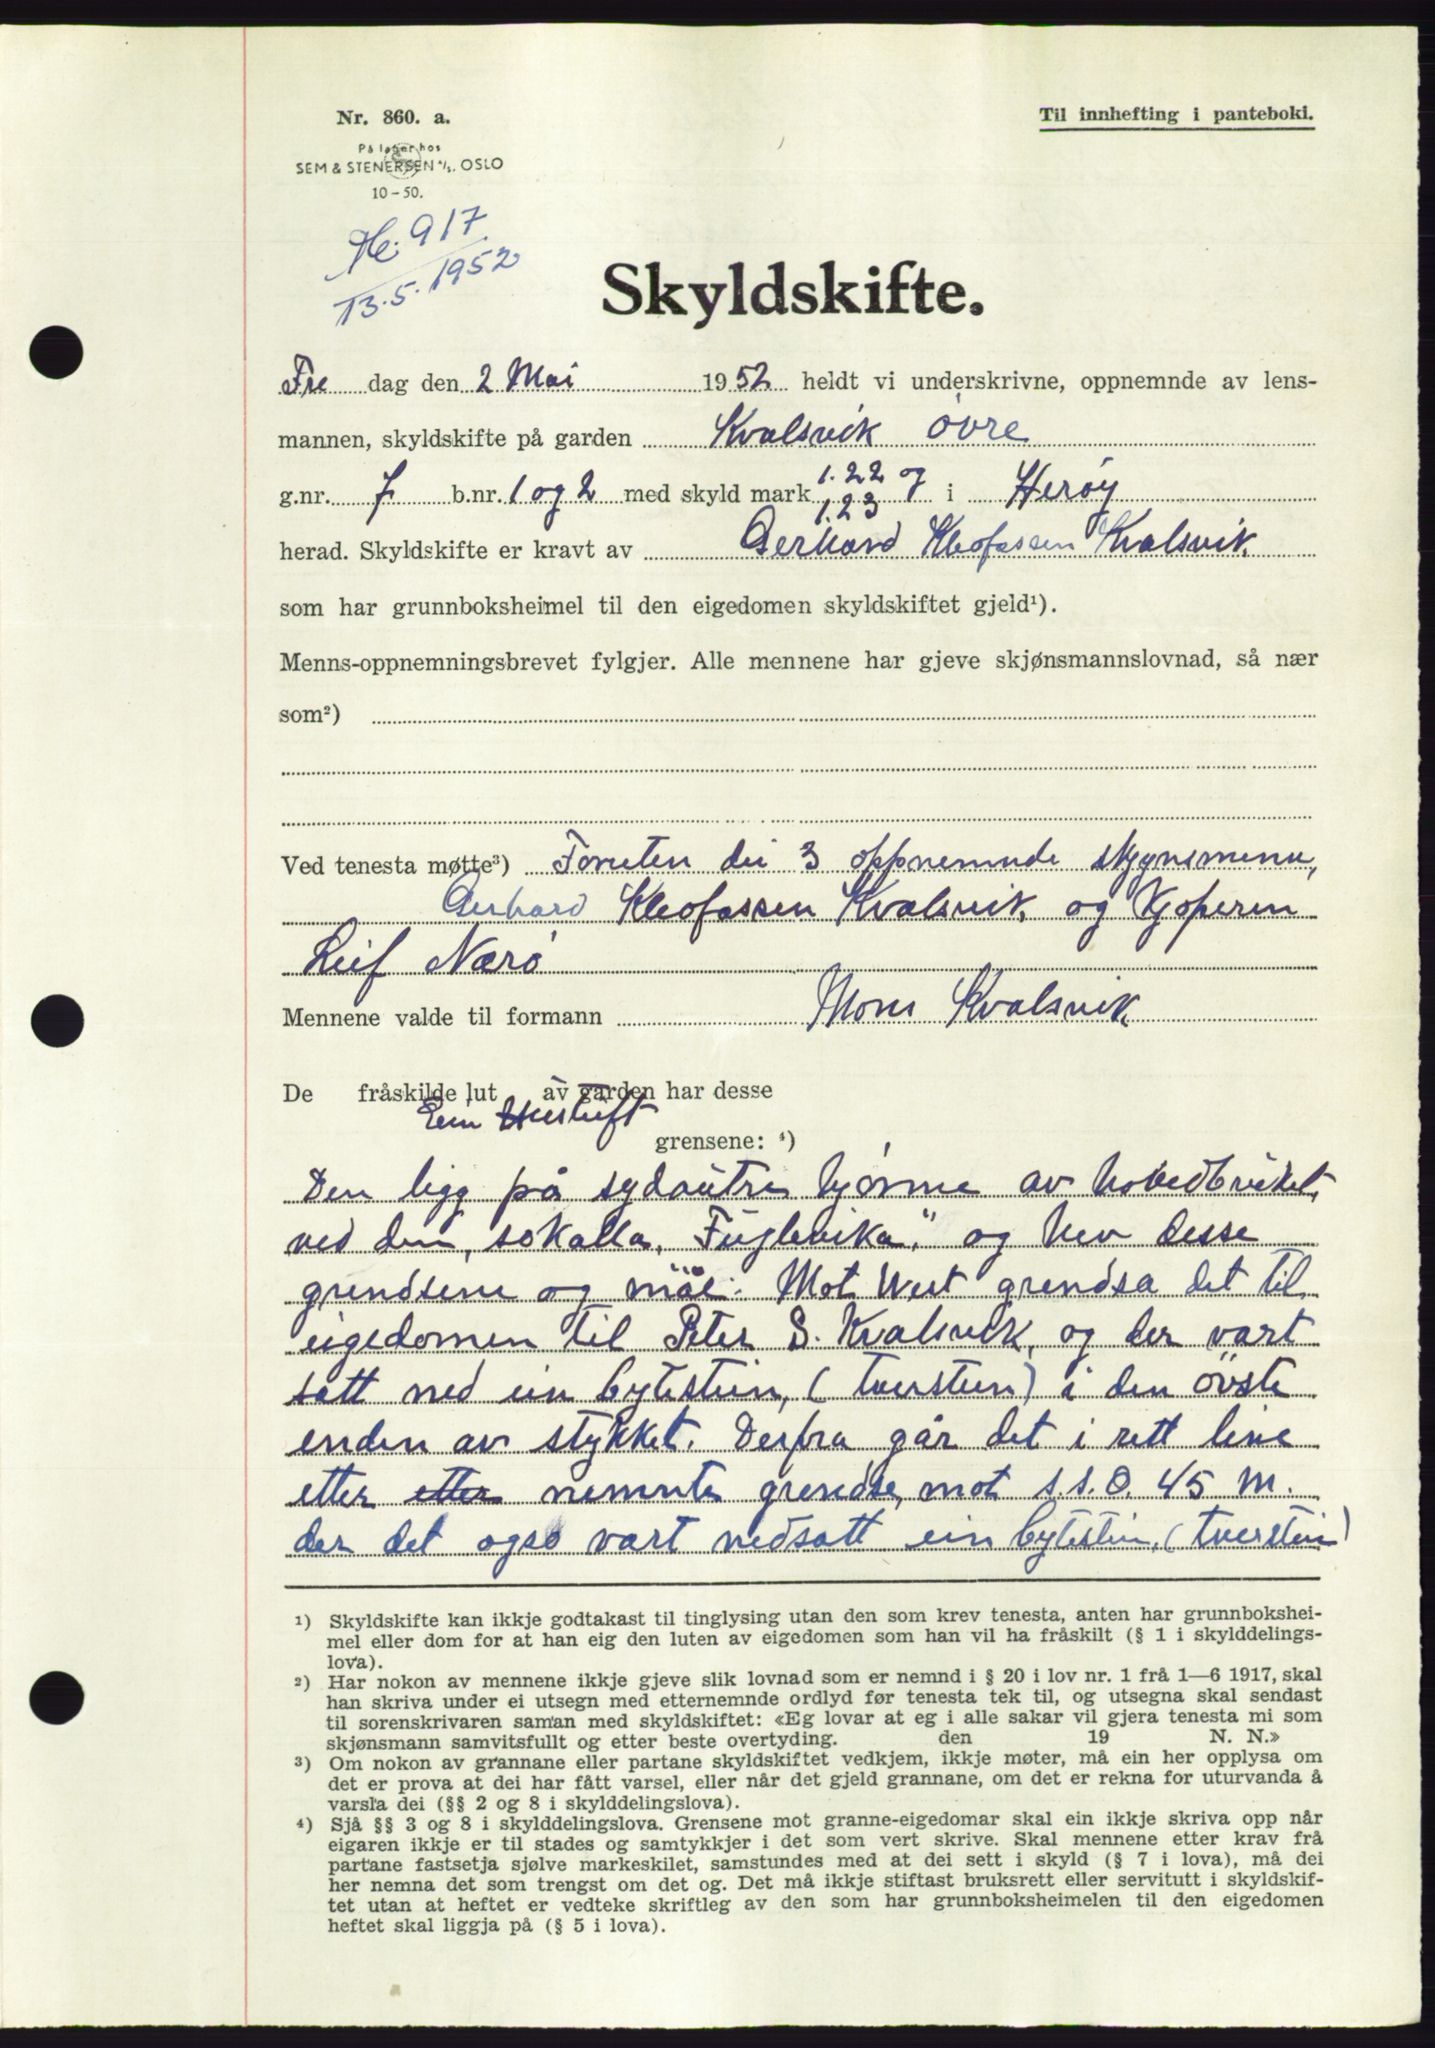 Nr. 860. a.
Til innhefting i panteboki.
På lager hos
SEM & STENERSEN A/S. OSLO
10-50.
No. 917
13.5.1952
Skyldskifte.
Fre dag den 2 Mai 1952 heldt vi underskrivne, oppnemnde av lens-
mannen, skyldskifte på garden Kvalsvik övre
g.nr. 7 b.nr. 1 og 2 med skyld mark 1.22 og 1.23 i Herøy
herad. Skyldskifte er kravt av Gerhard Kleofassen Kvalsvik
som har grunnboksheimel til den eigedomen skyldskiftet gjeld¹).
Menns-oppnemningsbrevet fylgjer. Alle mennene har gjeve skjønsmannslovnad, så nær
som²)
Ved tenesta møtte³) Foruten dei 3 oppnemnde skynsmenn,
Gerhard Kleofassen Kvalsvik og Kjøperen
Leif Nærö
Mennene valde til formann Mons Kvalsvik
De fråskilde lut av garden har desse
Ein Hustuft
grensene: ⁴)
Den ligg på sydøutre hjørne av hovedbruket,
ved den, sokalla, Fuglevika." og hev desse
grendsene og mål: Mot Vest grendsa det til
eigedomen til Peter S. Kvalsvik, og der vart
sett ned ein bytestein, (tverstein) i den övste
enden av stykket. Derfra går det i rett line
etter etter nemnte grendse, mot s.s.o. 45 m.
der det også vart nedsatt ein bytestein. (tverstein)
¹) Skyldskifte kan ikkje godtakast til tinglysing utan den som krev tenesta, anten har grunnbokshei-
mel eller dom for at han eig den luten av eigedomen som han vil ha fråskilt (§ 1 i skylddelings-
lova).
²) Har nokon av mennene ikkje gjeve slik lovnad som er nemnd i § 20 i lov nr. 1 frå 1—6 1917, skal
han skriva under ei utsegn med etternemnde ordlyd før tenesta tek til, og utsegna skal sendast
til sorenskrivaren saman med skyldskiftet: «Eg lovar at eg i alle sakar vil gjera tenesta mi som
skjønsmann samvitsfullt og etter beste overtyding. den 19 N. N.»
³) Om nokon av grannane eller partane skyldskiftet vedkjem, ikkje møter, må ein her opplysa om
det er prova at dei har fått varsel, eller når det gjeld grannane, om det er rekna for uturvanda å
varsla dei (§§ 2 og 8 i skylddelingslova).
⁴) Sjå §§ 3 og 8 i skylddelingslova. Grensene mot granne-eigedomar skal ein ikkje skriva opp når
eigaren ikkje er til stades og samtykkjer i det som vert skrive. Skal mennene etter krav frå
partane fastsetja sjølve markeskilet, samstundes med at dei sett i skyld (§ 7 i lova), må dei
her nemna det som trengst om det og. Det må ikkje stiftast bruksrett eller servitutt i skyldskif-
tet utan at heftet er vedteke skriftleg av den som har grunnboksheimelen til den eigedomen
heftet skal liggja på (§ 5 i lova).